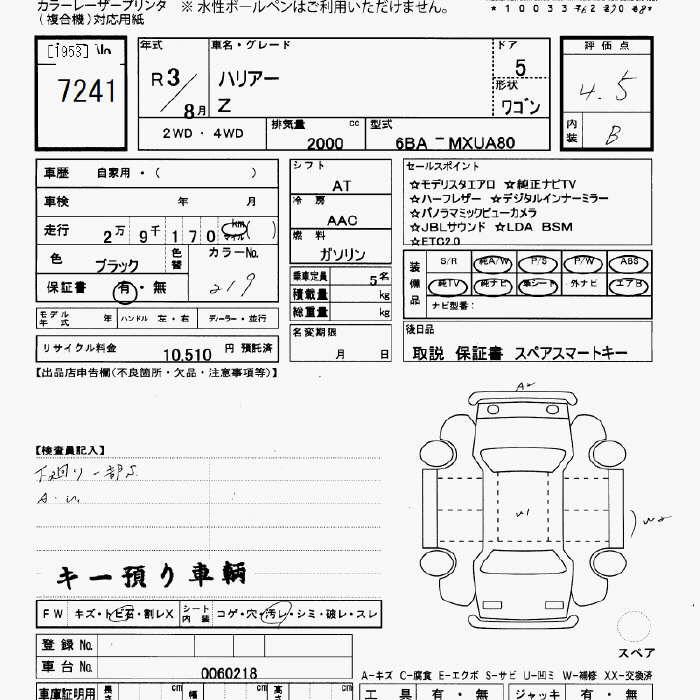 カラーレーザープリンタ ※ 水性ボールペンはご利用いただけません。
(複合機)対応用紙
[1953]
7241
年式 車名・グレード ドア 評価点
R 3 ハリアー 5 4.5
8月 Z 形状 ワゴン 内装 B
2WD・4WD 排気量 cc 型式
2000 6BA－MXUA80
車歴 自家用・( )
車検 年 月
走行 2万 9千 1 7 0 km マイル ( )
色 ブラック 色替 カラーNo.
219
保証書 有・無
モデル年式 年 ハンドル 左・右 ディーラー・並行
リサイクル料金 10,510 円 預託済
シフト
AT
冷房
AAC
燃料
ガソリン
乗車定員 5名
積載量 kg
総重量 kg
名変期限
月 日
セールスポイント
☆モデリスタエアロ ☆純正ナビTV
☆ハーフレザー ☆デジタルインナーミラー
☆パノラマミックビューカメラ
☆JBLサウンド ☆LDA BSM
☆ETC2.0
装備品 S/R 純A/W P/S P/W ABS
純TV 純ナビ 革シート 外ナビ エアB
ナビ型番：
後日品
取説 保証書 スペアスマートキー
【出品店申告欄(不良箇所・欠品・注意事項等)】
【検査員記入】
下廻り一部S
A.U.
キー預り車輌
FW キズ・トビ石・割レX シート内装 コゲ・穴・汚レ・シミ・破レ・スレ
登録No.
車台No. 0060218
車庫証明用 長さ cm 幅 cm 高さ cm
A2
W1
W2
スペア
A－キズ C－腐食 E－エクボ S－サビ U－凹ミ W－補修 XX－交換済
工具 有・無 ジャッキ 有・無